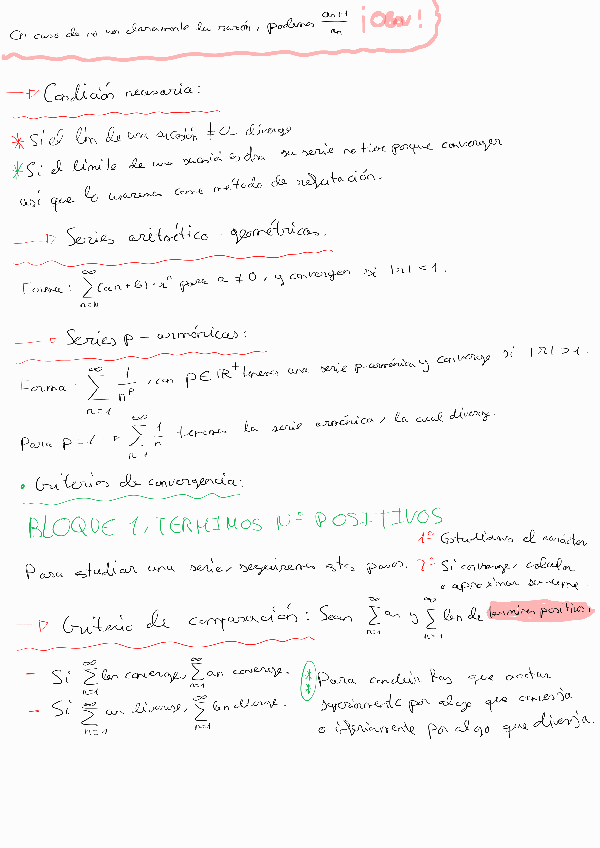 En caso de no ver claramente la razón, podemos an+1/an ¡Obs!
Condición necesaria:
* Si el lím de una sucesión ≠ 0 diverge
* Si el límite de una sucesión es 0 su serie no tiene porque converger
así que lo usaremos como método de refutación.
Series aritmético-geométricas.
Forma: ∞ Σ n=k (an+b)·r^n para a ≠ 0, y convergen si |r| < 1.
Series p-armónicas:
Forma: ∞ Σ n=1 1/n^p, con p ∈ ℝ+ tenemos una serie p-armónica y converge si |r| > 1.
Para p=1 → ∞ Σ n=1 1/n tenemos la serie armónica, la cual diverge.
• Criterios de convergencia:
BLOQUE 1, TERMINOS Nº POSITIVOS
1º Estudiamos el carácter
Para estudiar una serie, seguiremos estos pasos. 2º Si converge, calcular
o aproximar su
Criterio de comparación: Sean ∞ Σ n=1 an y ∞ Σ n=1 bn de terminos positivos,
- Si ∞ Σ n=1 bn converge, ∞ Σ n=1 an converge. ** Para concluir hay que acotar
- Si ∞ Σ n=1 an diverge, ∞ Σ n=1 bn diverge. superiormente por algo que converja
o inferiormente por algo que diverja.